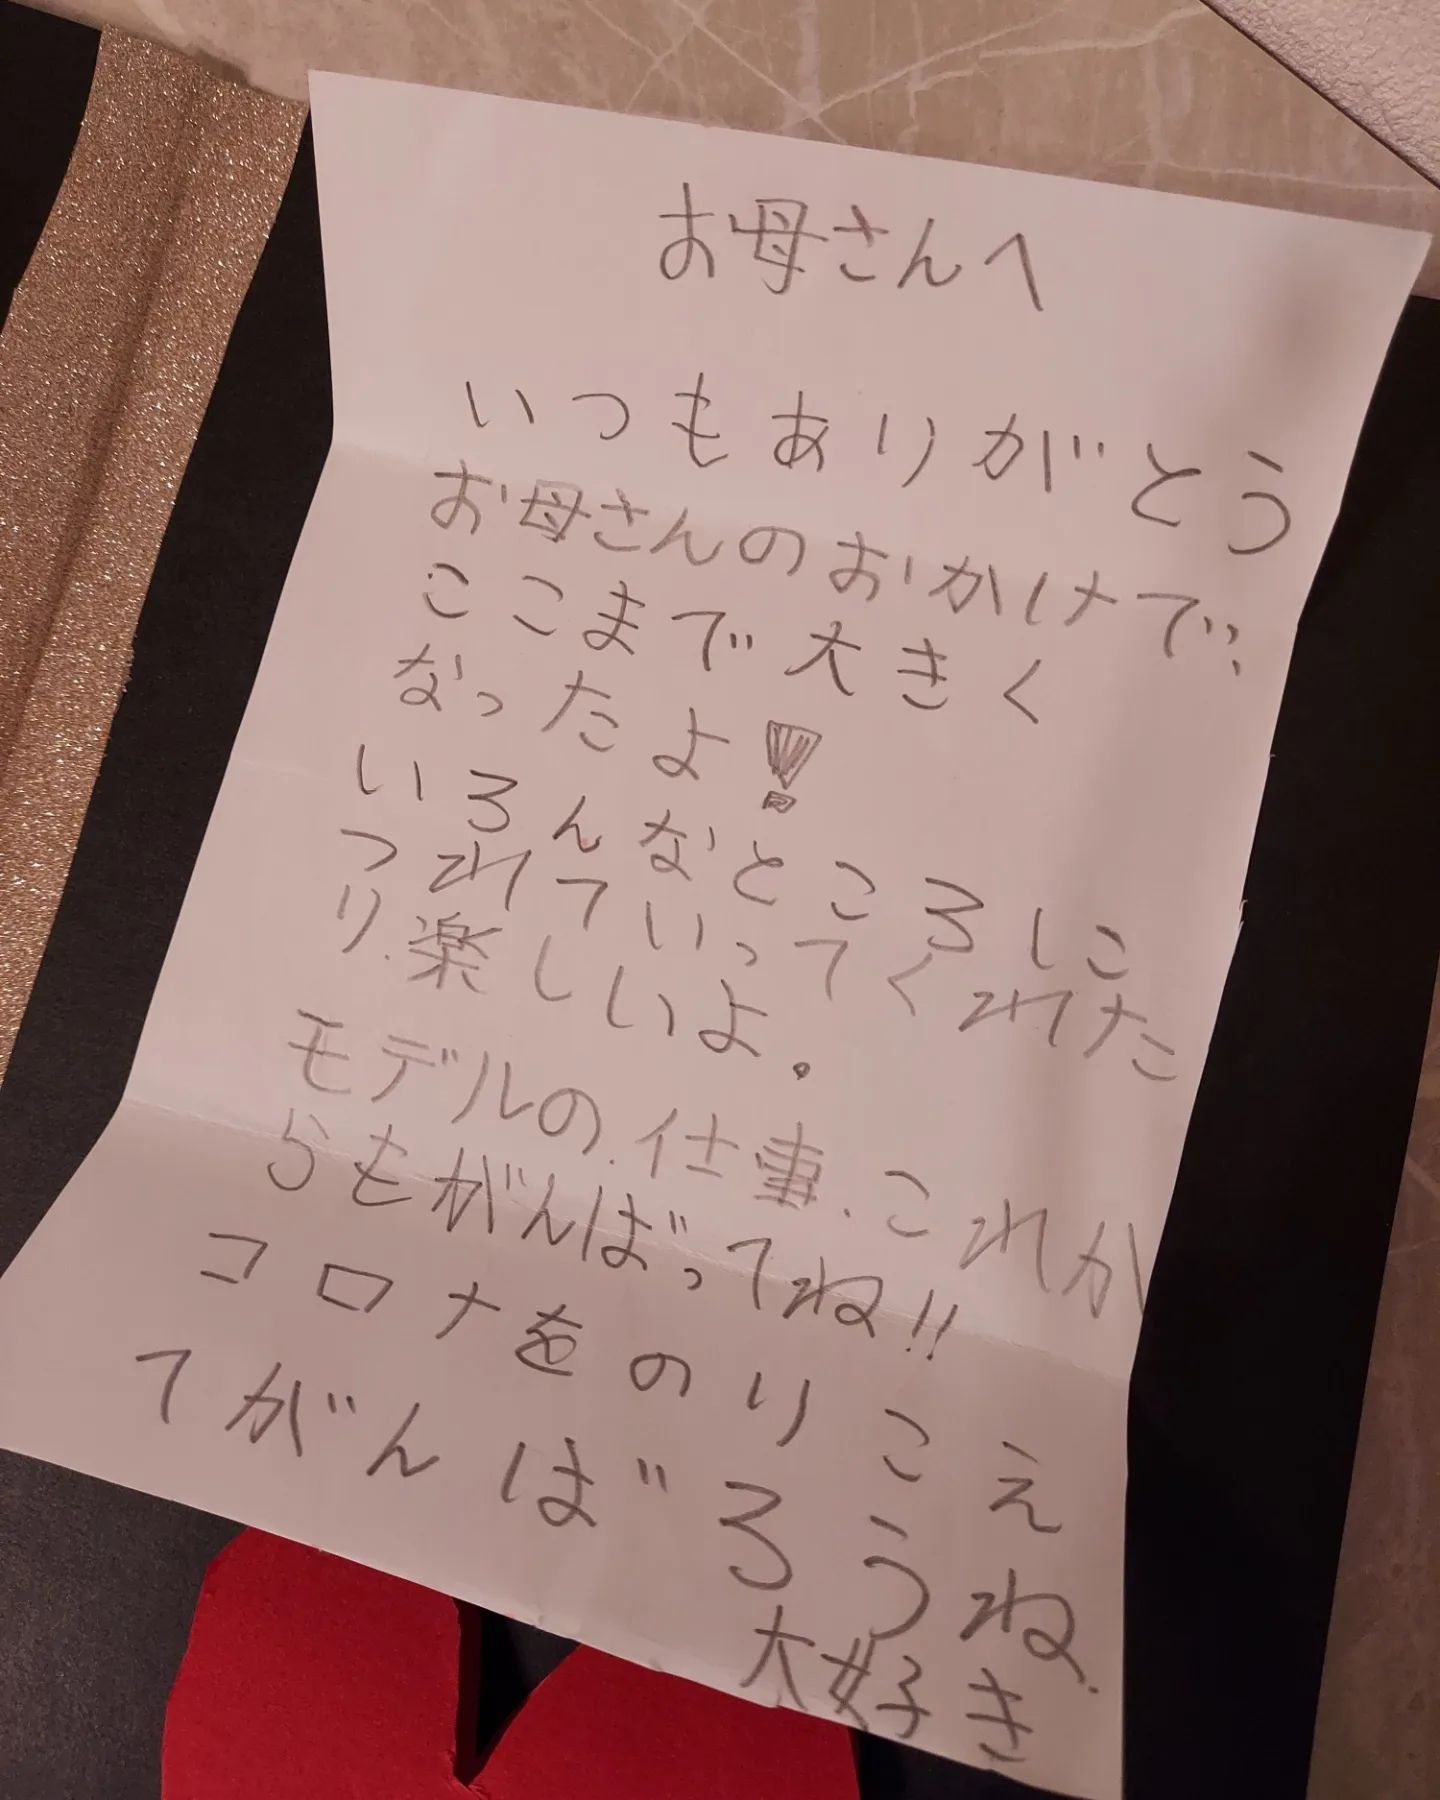 お母さんへ
いつもありがとう
お母さんのおかけで、
ここまで大きく
なったよ!
いろんなところに
つれていってくれた
り、楽しいよ。
モデルの、仕事、これか
らもがんばってね!!
コロナをのりこえ
てがんばろうね、
大好き